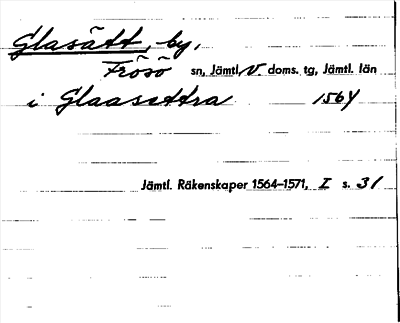 Glasätt, by,
Frösö sn, Jämtl. V. doms. tg, Jämtl. län
i Glaasettra 1564
Jämtl. Räkenskaper 1564–1571, I s. 31